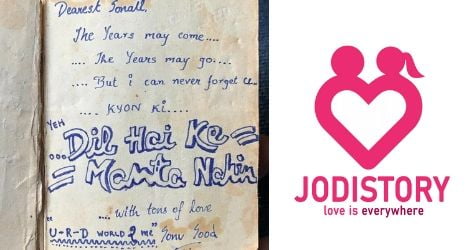 Dearest Sonali,
The Years may come....
.... The Years may go....
.... But i can never forget u...
.... KYON KI....
YEH
...Dil Hai Ke =
= Manta Nahin
... with tons of love
"U-R-D WORLD 2 me" Sonu Sood
JODISTORY
love is everywhere